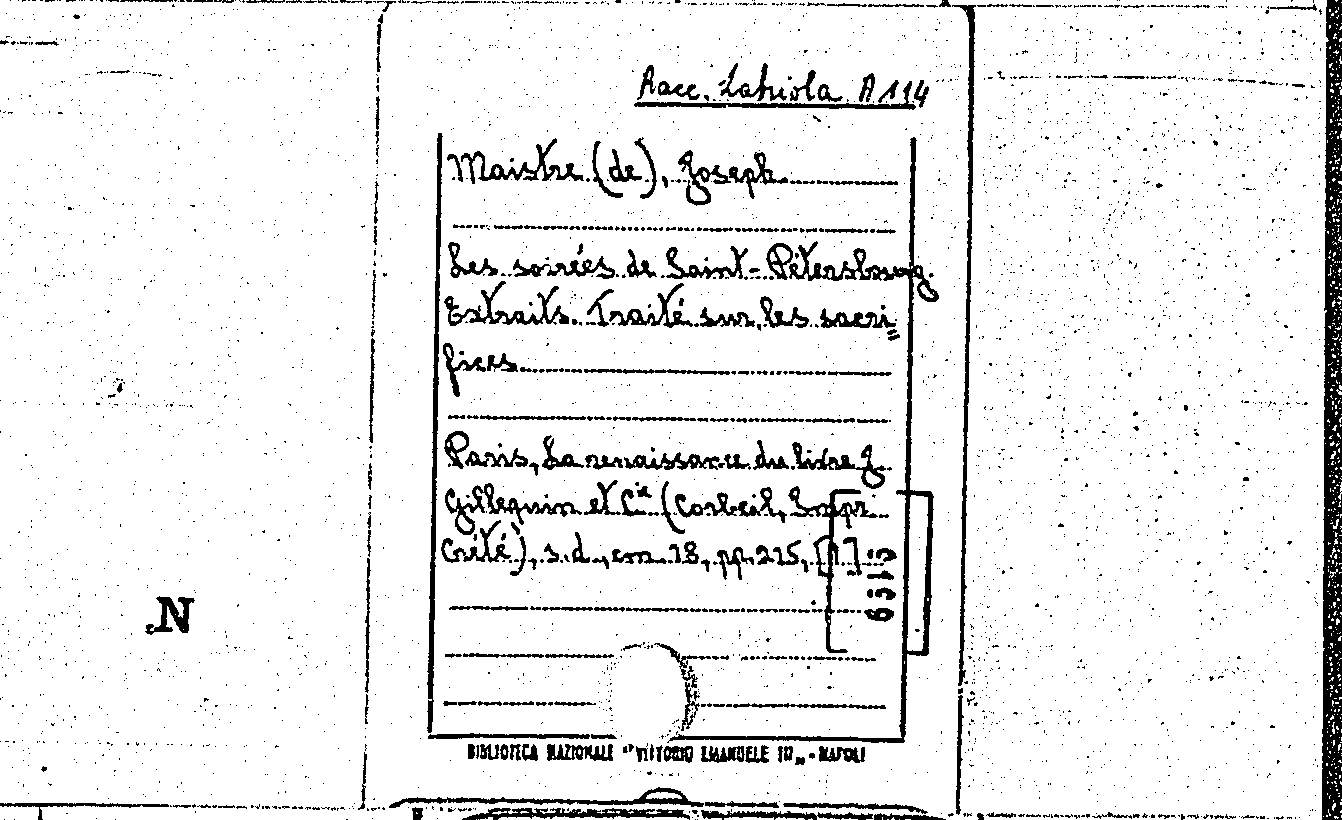 Racc. Labriola A 114
Maistre (de), Joseph
Les soirées de Saint-Pétersbourg.
Extraits. Traité sur les sacri=
fices.
Paris, La renaissance du livre J.
Gillequin et Cie (Corbeil, Impr.
Crété), s.d., cm. 18, pp. 215, [1]
N
BIBLIOTECA NAZIONALE "VITTORIO EMANUELE III" - NAPOLI